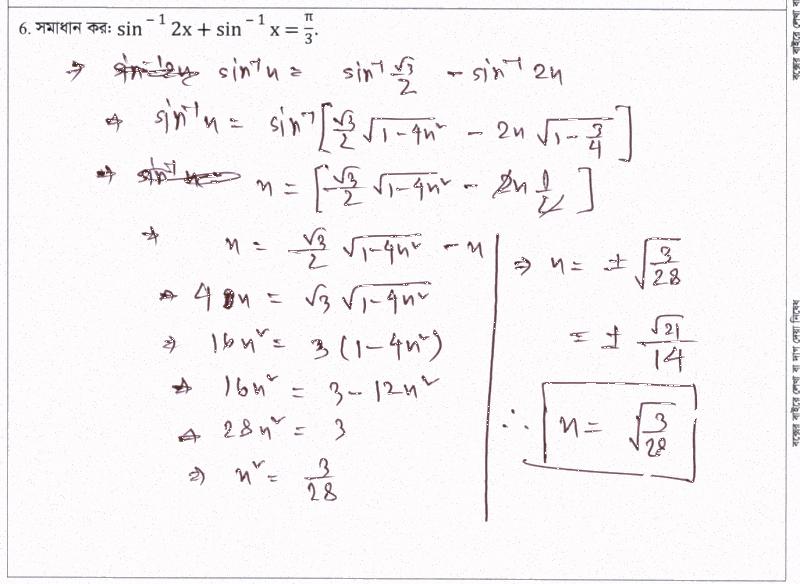 6. সমাধান কর: sin⁻¹ 2x + sin⁻¹ x = π/3.
⇒ sin⁻¹x = sin⁻¹ √3/2 - sin⁻¹ 2x
⇒ sin⁻¹x = sin⁻¹[√3/2 √(1-4x²) - 2x √(1-3/4)]
⇒ x = [√3/2 √(1-4x²) - 2x 1/2]
⇒ x = √3/2 √(1-4x²) - x
⇒ 4x = √3 √(1-4x²)
⇒ 16x² = 3(1-4x²)
⇒ 16x² = 3-12x²
⇒ 28x² = 3
⇒ x² = 3/28
⇒ x = ± √(3/28)
= ± √21/14
∴ x = √(3/28)
বক্সের বাইরে লেখা বা দাগ দেয়া নিষেধ